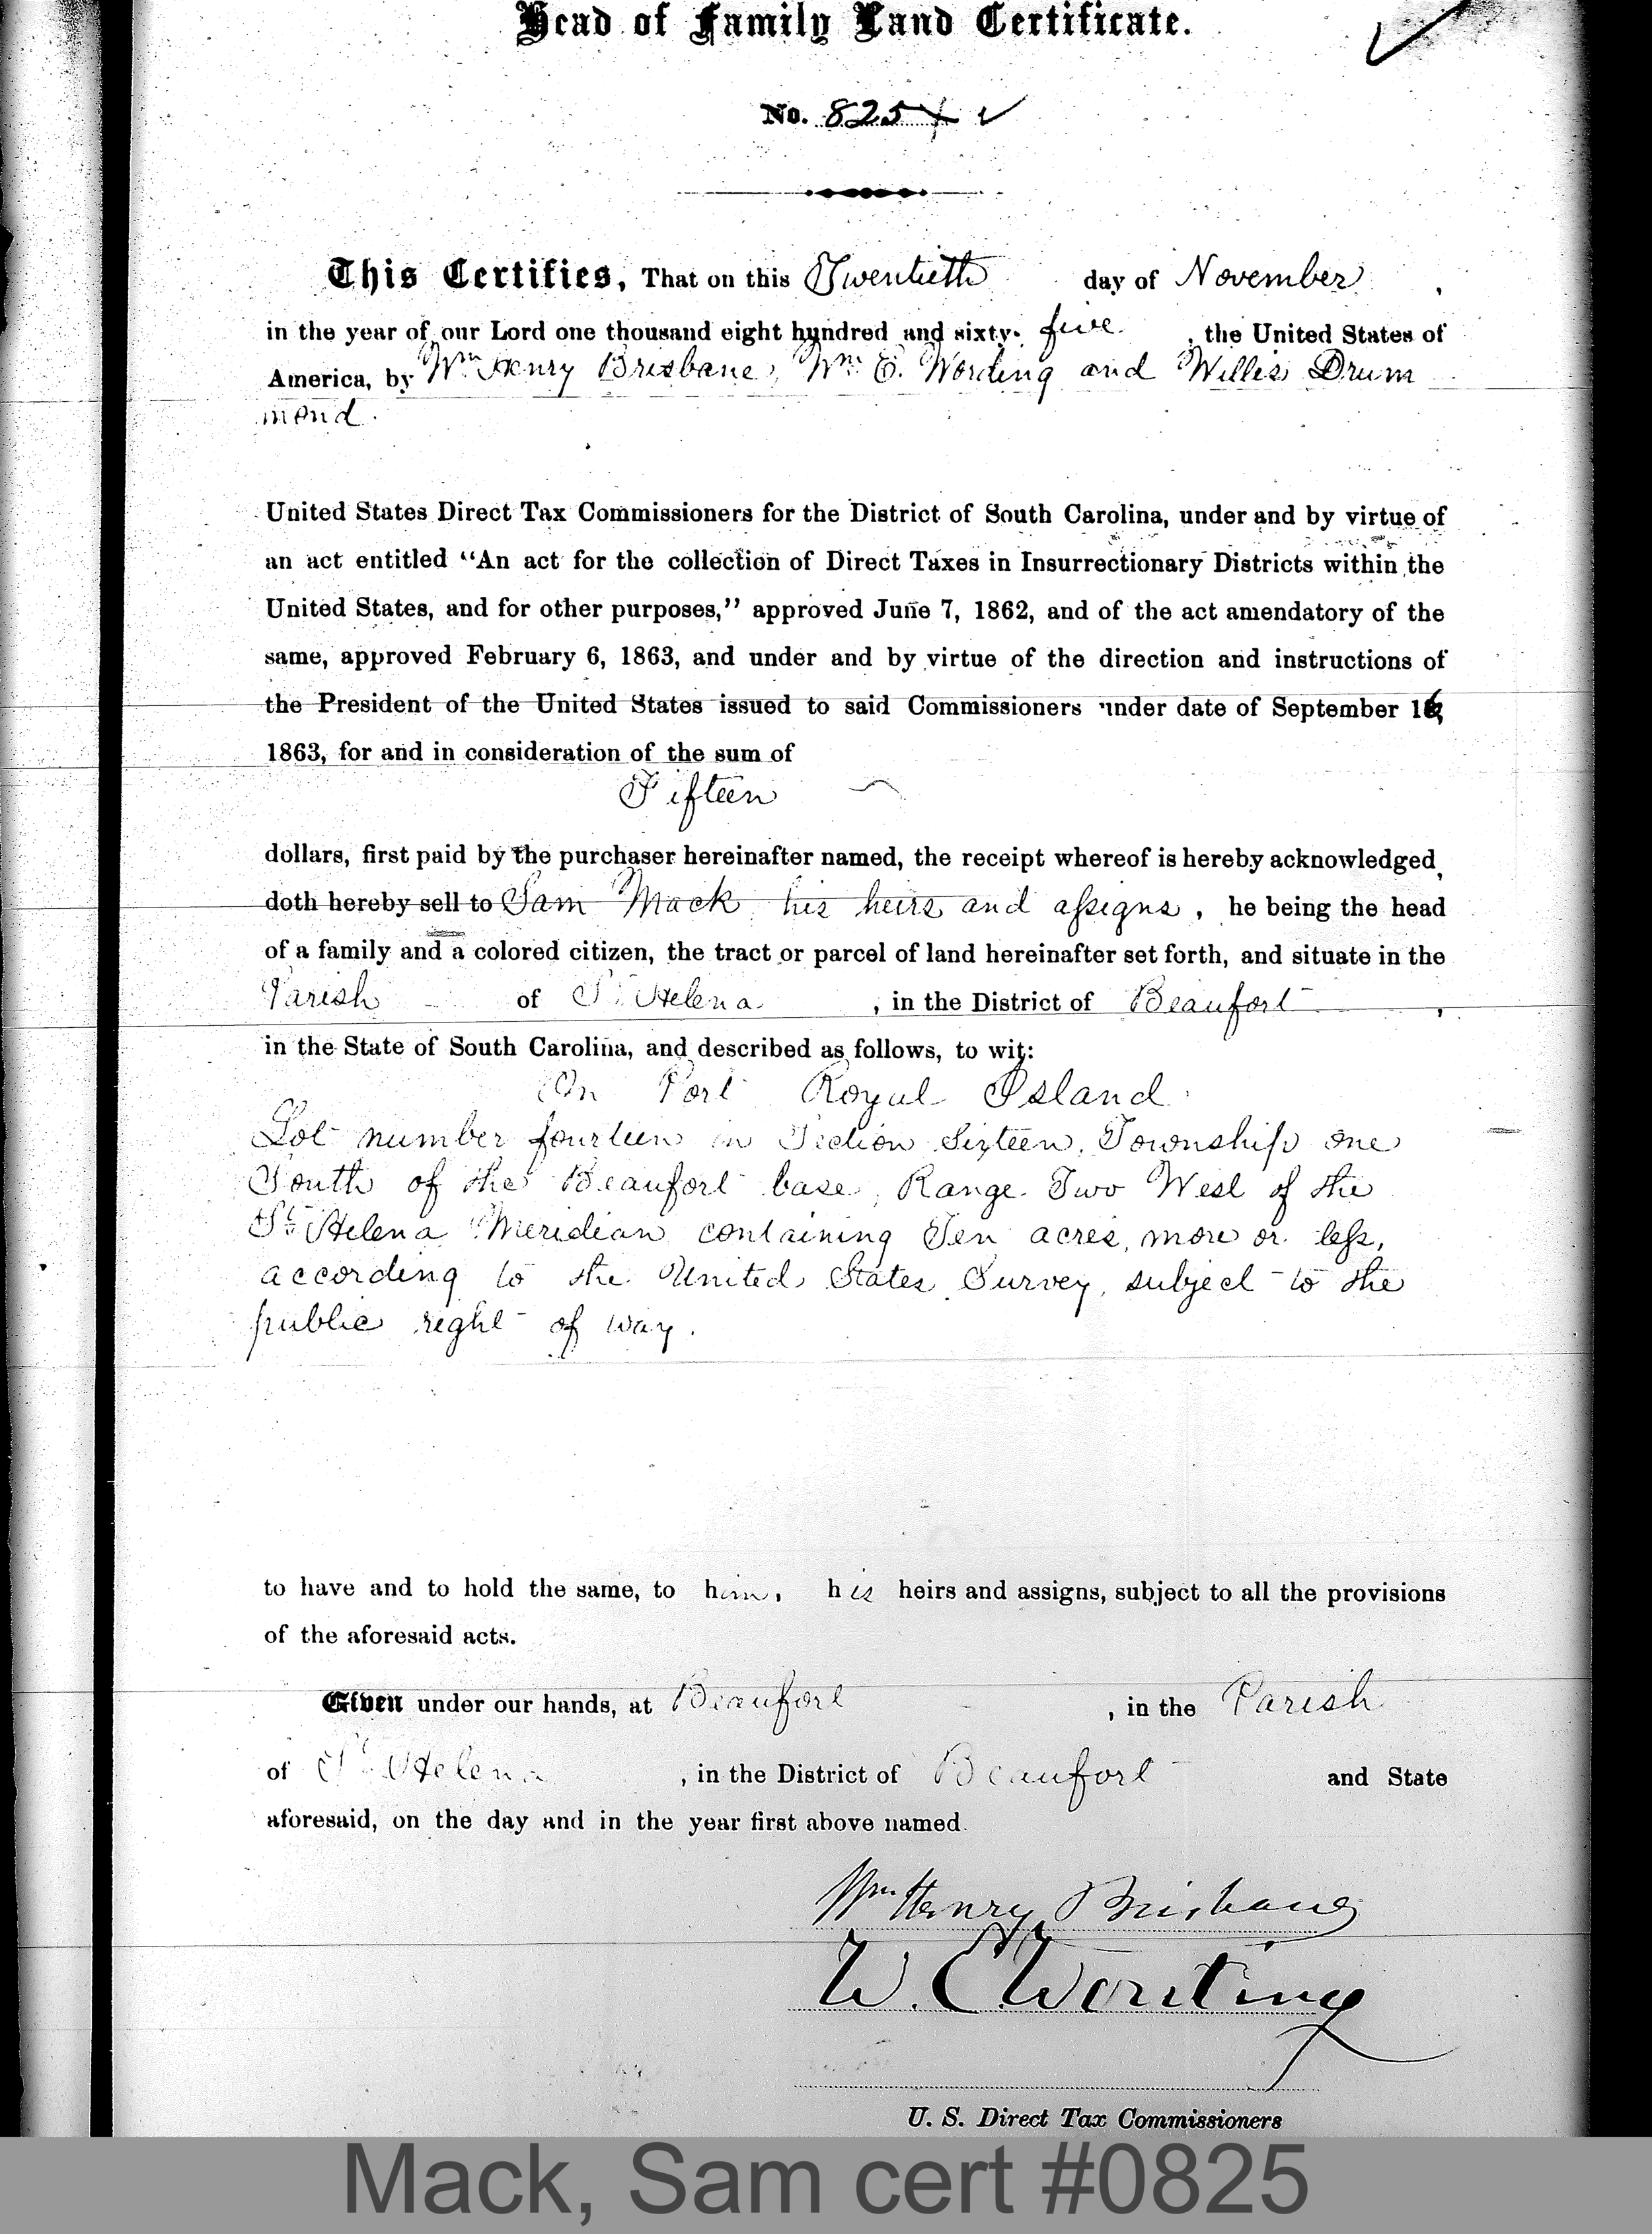 Head of Family Land Certificate.
No. 825
This Certifies, That on this Twentieth day of November,
in the year of our Lord one thousand eight hundred and sixty-five, the United States of
America, by Wm Henry Brisbane, Wm. E. Wording and Willis Drum
mond.
United States Direct Tax Commissioners for the District of South Carolina, under and by virtue of
an act entitled “An act for the collection of Direct Taxes in Insurrectionary Districts within the
United States, and for other purposes,” approved June 7, 1862, and of the act amendatory of the
same, approved February 6, 1863, and under and by virtue of the direction and instructions of
the President of the United States issued to said Commissioners under date of September 16,
1863, for and in consideration of the sum of
Fifteen
dollars, first paid by the purchaser hereinafter named, the receipt whereof is hereby acknowledged,
doth hereby sell to Sam Mack his heirs and assigns, he being the head
of a family and a colored citizen, the tract or parcel of land hereinafter set forth, and situate in the
Parish of St. Helena, in the District of Beaufort,
in the State of South Carolina, and described as follows, to wit:
On Port Royal Island.
Lot number fourteen in Section Sixteen, Township one
South of the Beaufort base, Range Two West of the
St. Helena Meridian containing Ten acres, more or less,
according to the United States Survey, subject to the
public right of way.
to have and to hold the same, to him, his heirs and assigns, subject to all the provisions
of the aforesaid acts.
Given under our hands, at Beaufort, in the Parish
of St. Helena, in the District of Beaufort and State
aforesaid, on the day and in the year first above named.
Wm Henry Brisbane
W. E. Wording
U. S. Direct Tax Commissioners
Mack, Sam cert #0825